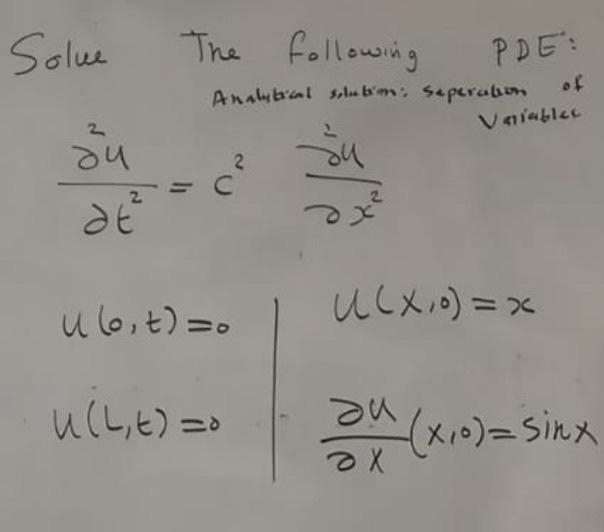 Solve The following PDE:
Analytical solution: Seperation of
Variables
∂²u/∂t² = c² ∂²u/∂x²
u(0,t)=0
u(L,t)=0
u(x,0)=x
∂u/∂x (x,0)=sinx